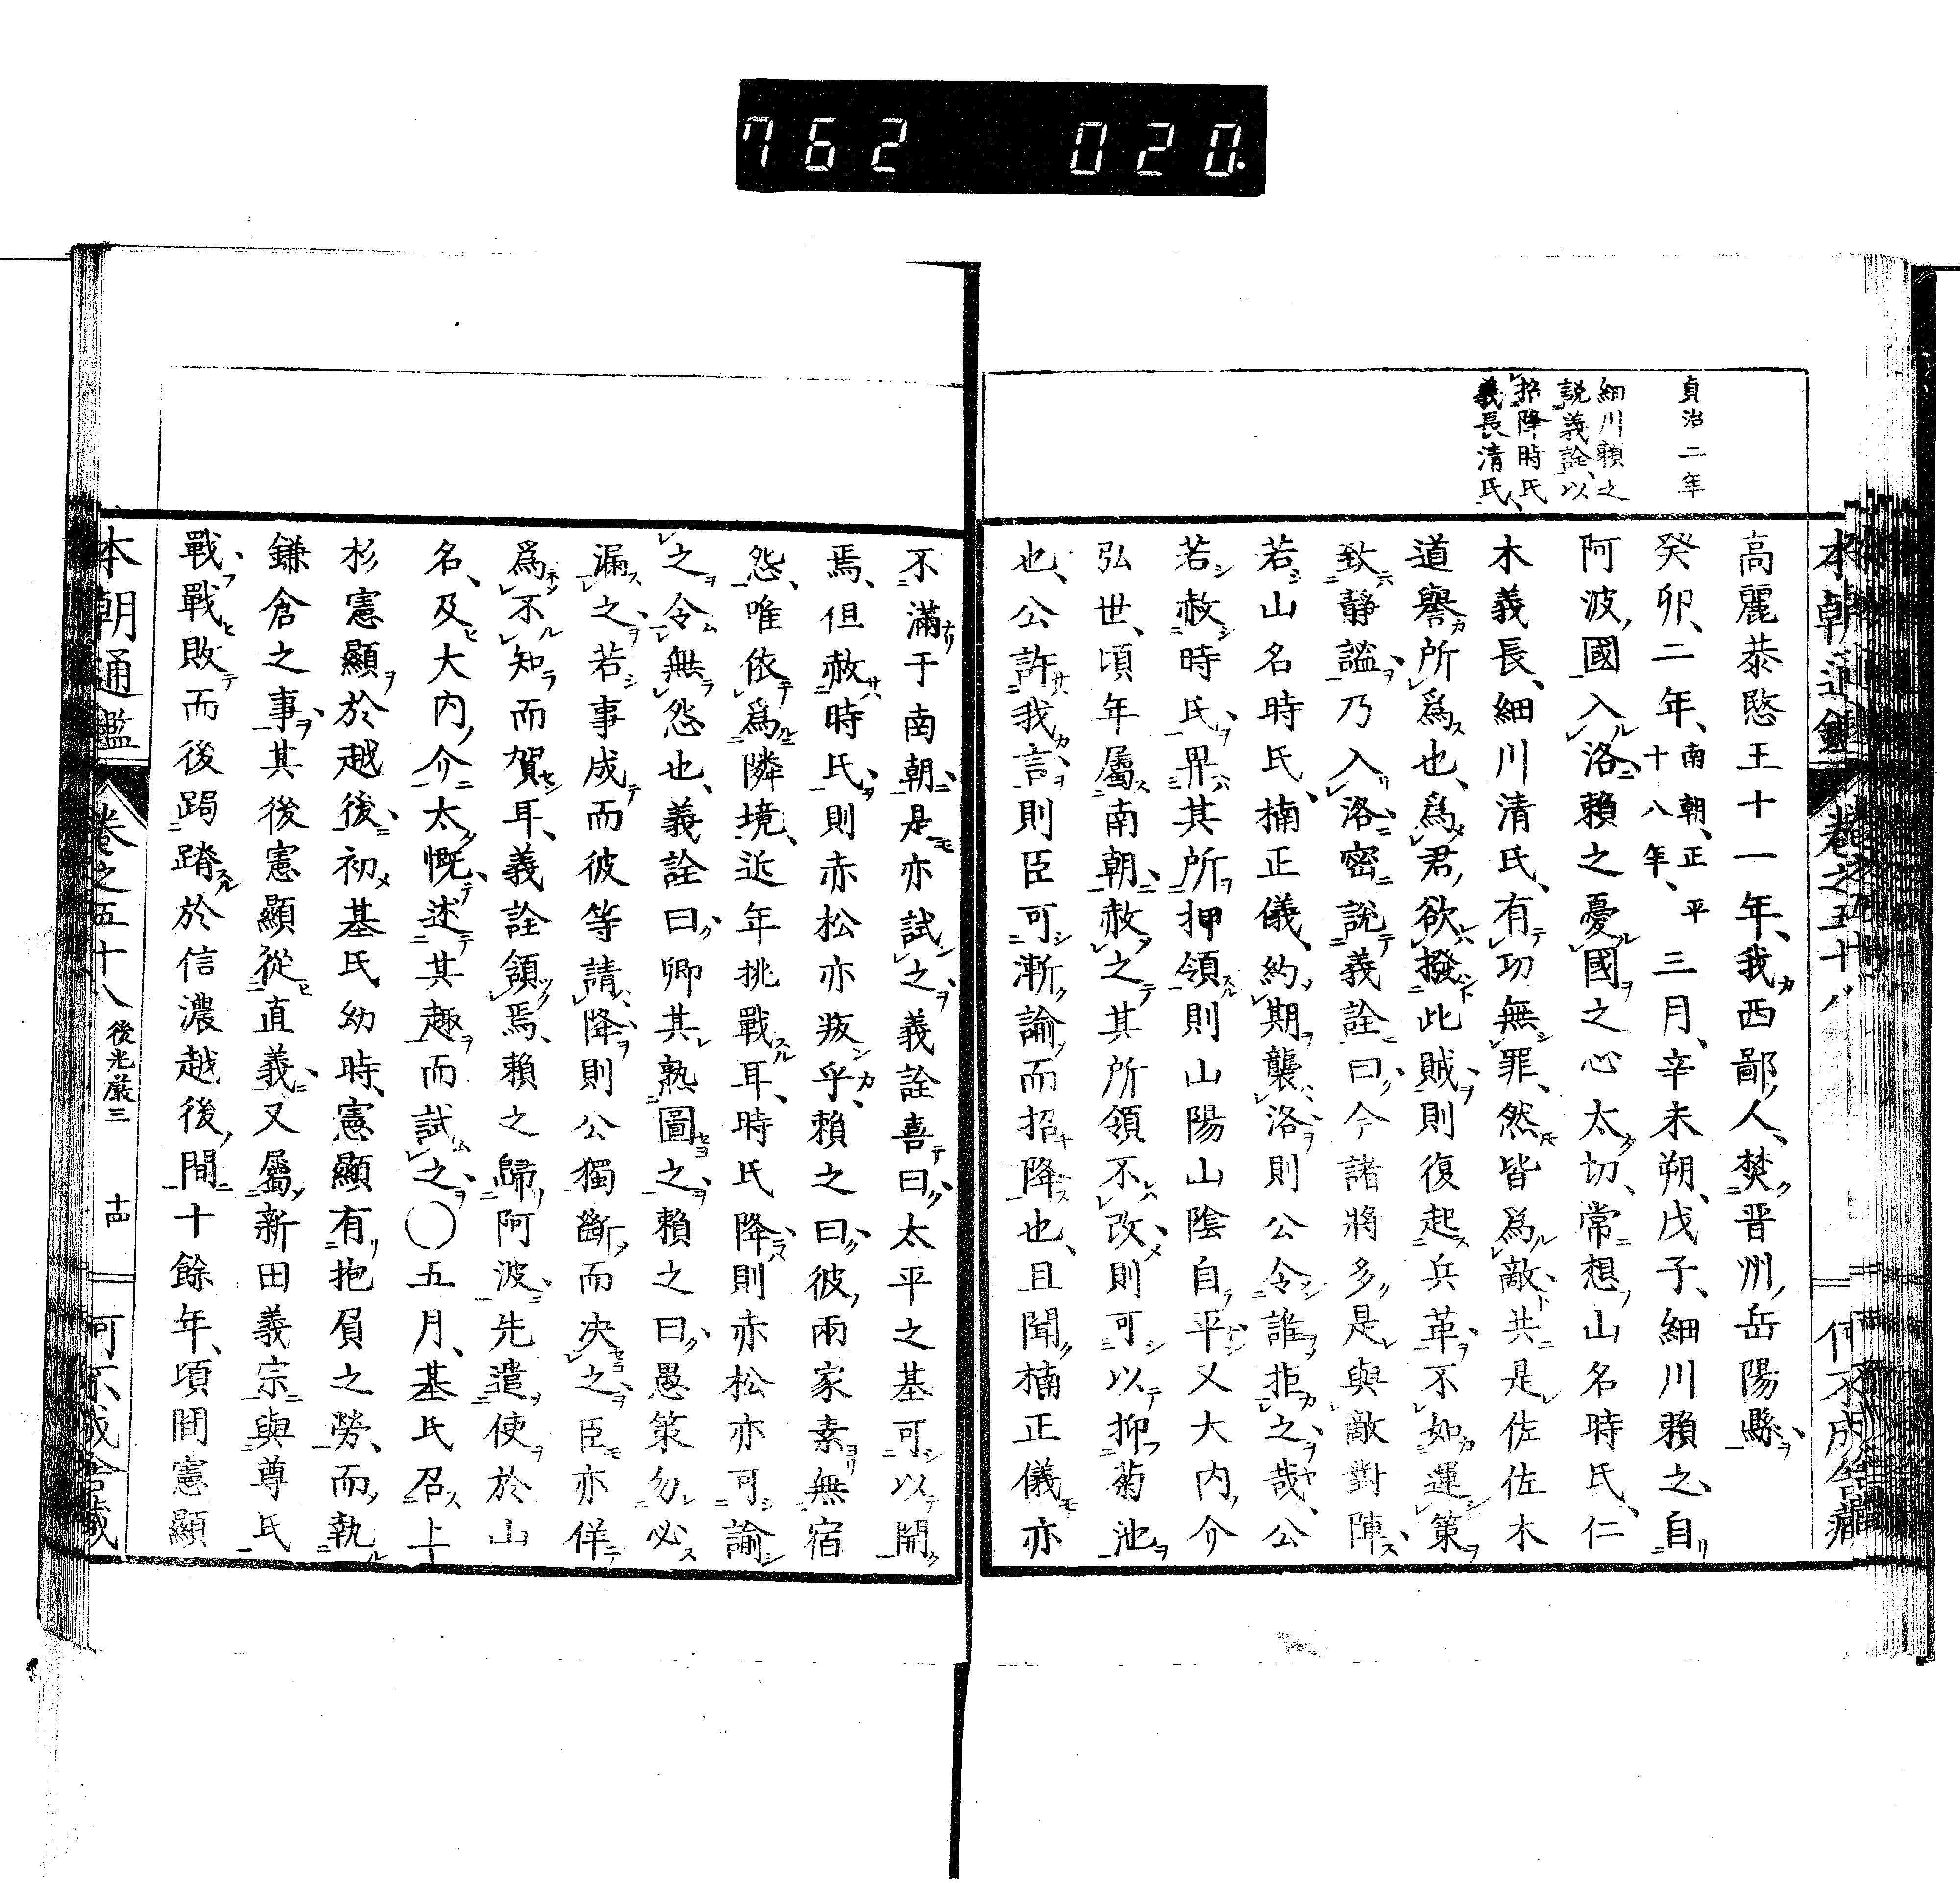 762 020.
貞治二年
細川賴之
説義詮、以
招降時氏
義長清氏
高麗恭愍王十一年、我西鄙人、焚晋州岳陽縣、
癸卯、二年、南朝、正平十八年、三月、辛未朔、戊子、細川賴之、自
阿波國入洛、賴之憂國之心太切、常想山名時氏、仁
木義長、細川清氏、有功無罪、然皆爲敵、共是佐佐木
道譽所爲也、爲君欲撥此賊、則復起兵革、不如運策
致靜謐、乃入洛、密説義詮曰、今諸將多是與敵對陣、
若山名時氏、楠正儀、約期襲洛、則公令誰拒之哉、公
若赦時氏、畀其所押領、則山陽山陰自平、又大内介
弘世、頃年屬南朝、赦之其所領不改、則可以抑菊池
也、公許我言、則臣可漸諭而招降也、且聞楠正儀亦
不滿于南朝、是亦試之、義詮喜曰、太平之基可以開
焉、但赦時氏、則赤松亦叛乎、賴之曰、彼兩家素無宿
怨、唯依爲隣境、近年挑戰耳、時氏降、則赤松亦可諭
之令無怨也、義詮曰、卿其熟圖之、賴之曰、愚策勿必
漏之、若事成而彼等請降、則公獨斷而决之、臣亦佯
爲不知而賀耳、義詮領焉、賴之歸阿波、先遣使於山
名、及大内介、太慨述其趣而試之、〇五月、基氏召上
杉憲顯於越後、初基氏幼時、憲顯有抱負之勞、而執
鎌倉之事、其後憲顯從直義、又屬新田義宗、與尊氏
戰、戰敗而後跼蹐於信濃越後間十餘年、頃間憲顯
本朝通鑑 卷之五十八 後光嚴三 十四 何不成舍藏